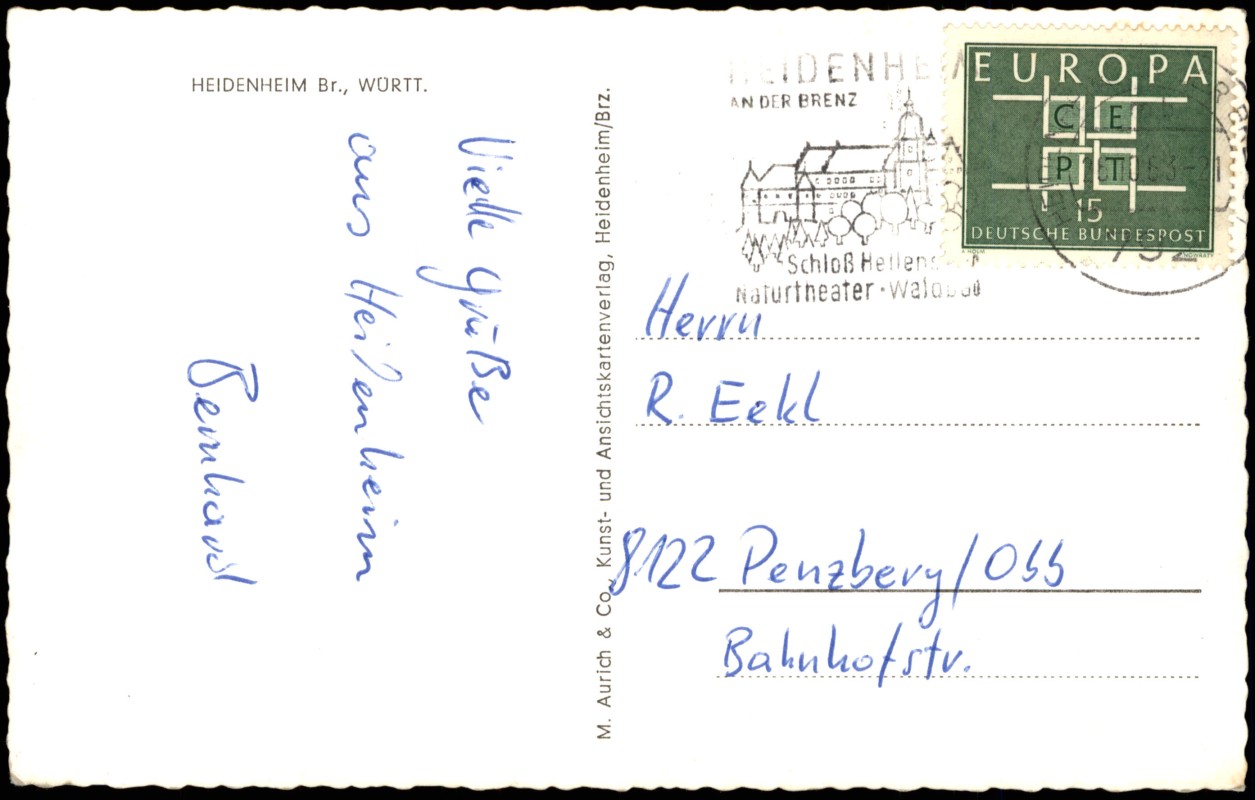 HEIDENHEIM Br., WÜRTT.
Vielle Grüße
aus Heidenheim
Bernhard
M. Aurich & Co., Kunst- und Ansichtskartenverlag, Heidenheim/Brz.
HEIDENHEIM
AN DER BRENZ
Schloß Hellenstein
Naturtheater · Waldbad
EUROPA
CE
PT
15
DEUTSCHE BUNDESPOST
16.10.63-21
792
Herrn
R. Eekl
8122 Penzberg/Obb
Bahnhofstr.